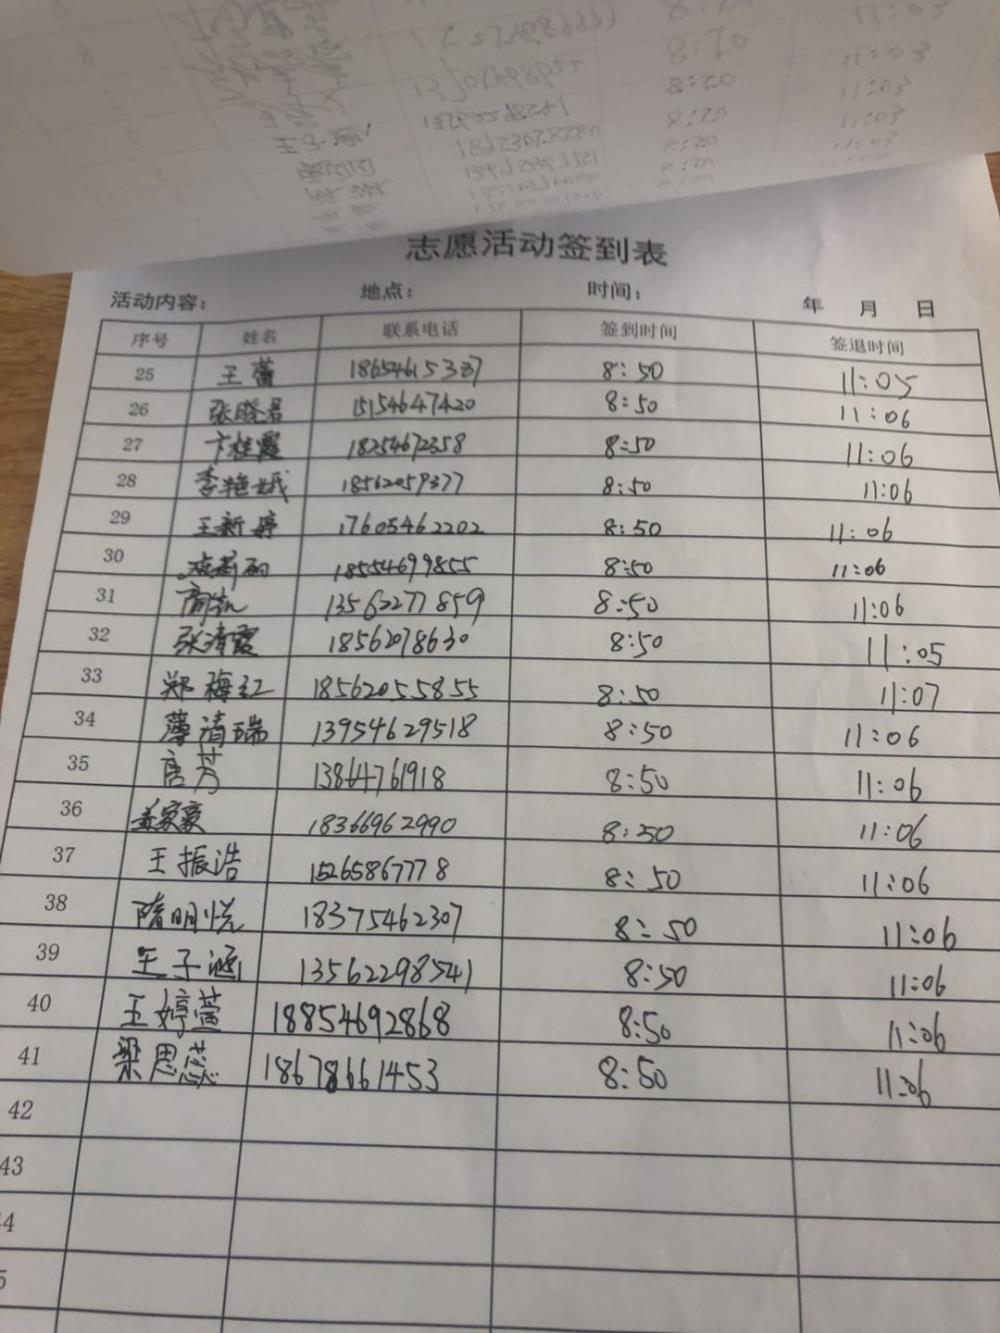 志愿活动签到表
活动内容： 地点： 时间： 年 月 日
序号 姓名 联系电话 签到时间 签退时间
25 王蕾 18654615337 8:50 11:05
26 张晓君 15154647420 8:50 11:06
27 卞桂霞 18254672358 8:50 11:06
28 李艳娥 18562059377 8:50 11:06
29 王新婷 17605462202 8:50 11:06
30 18554699855 8:50 11:06
31 商凯 13562277859 8:50 11:06
32 张清霞 1856278630 8:50 11:05
33 郑梅红 18562055855 8:50 11:07
34 薄清瑞 13954629518 8:50 11:06
35 唐芳 13864761918 8:50 11:06
36 盖家豪 18366962990 8:50 11:06
37 王振浩 15265867778 8:50 11:06
38 隋明悦 18375462307 8:50 11:06
39 王子涵 13562298541 8:50 11:06
40 王婷萱 18854692868 8:50 11:06
41 梁思蕊 18678661453 8:50 11:06
42
43